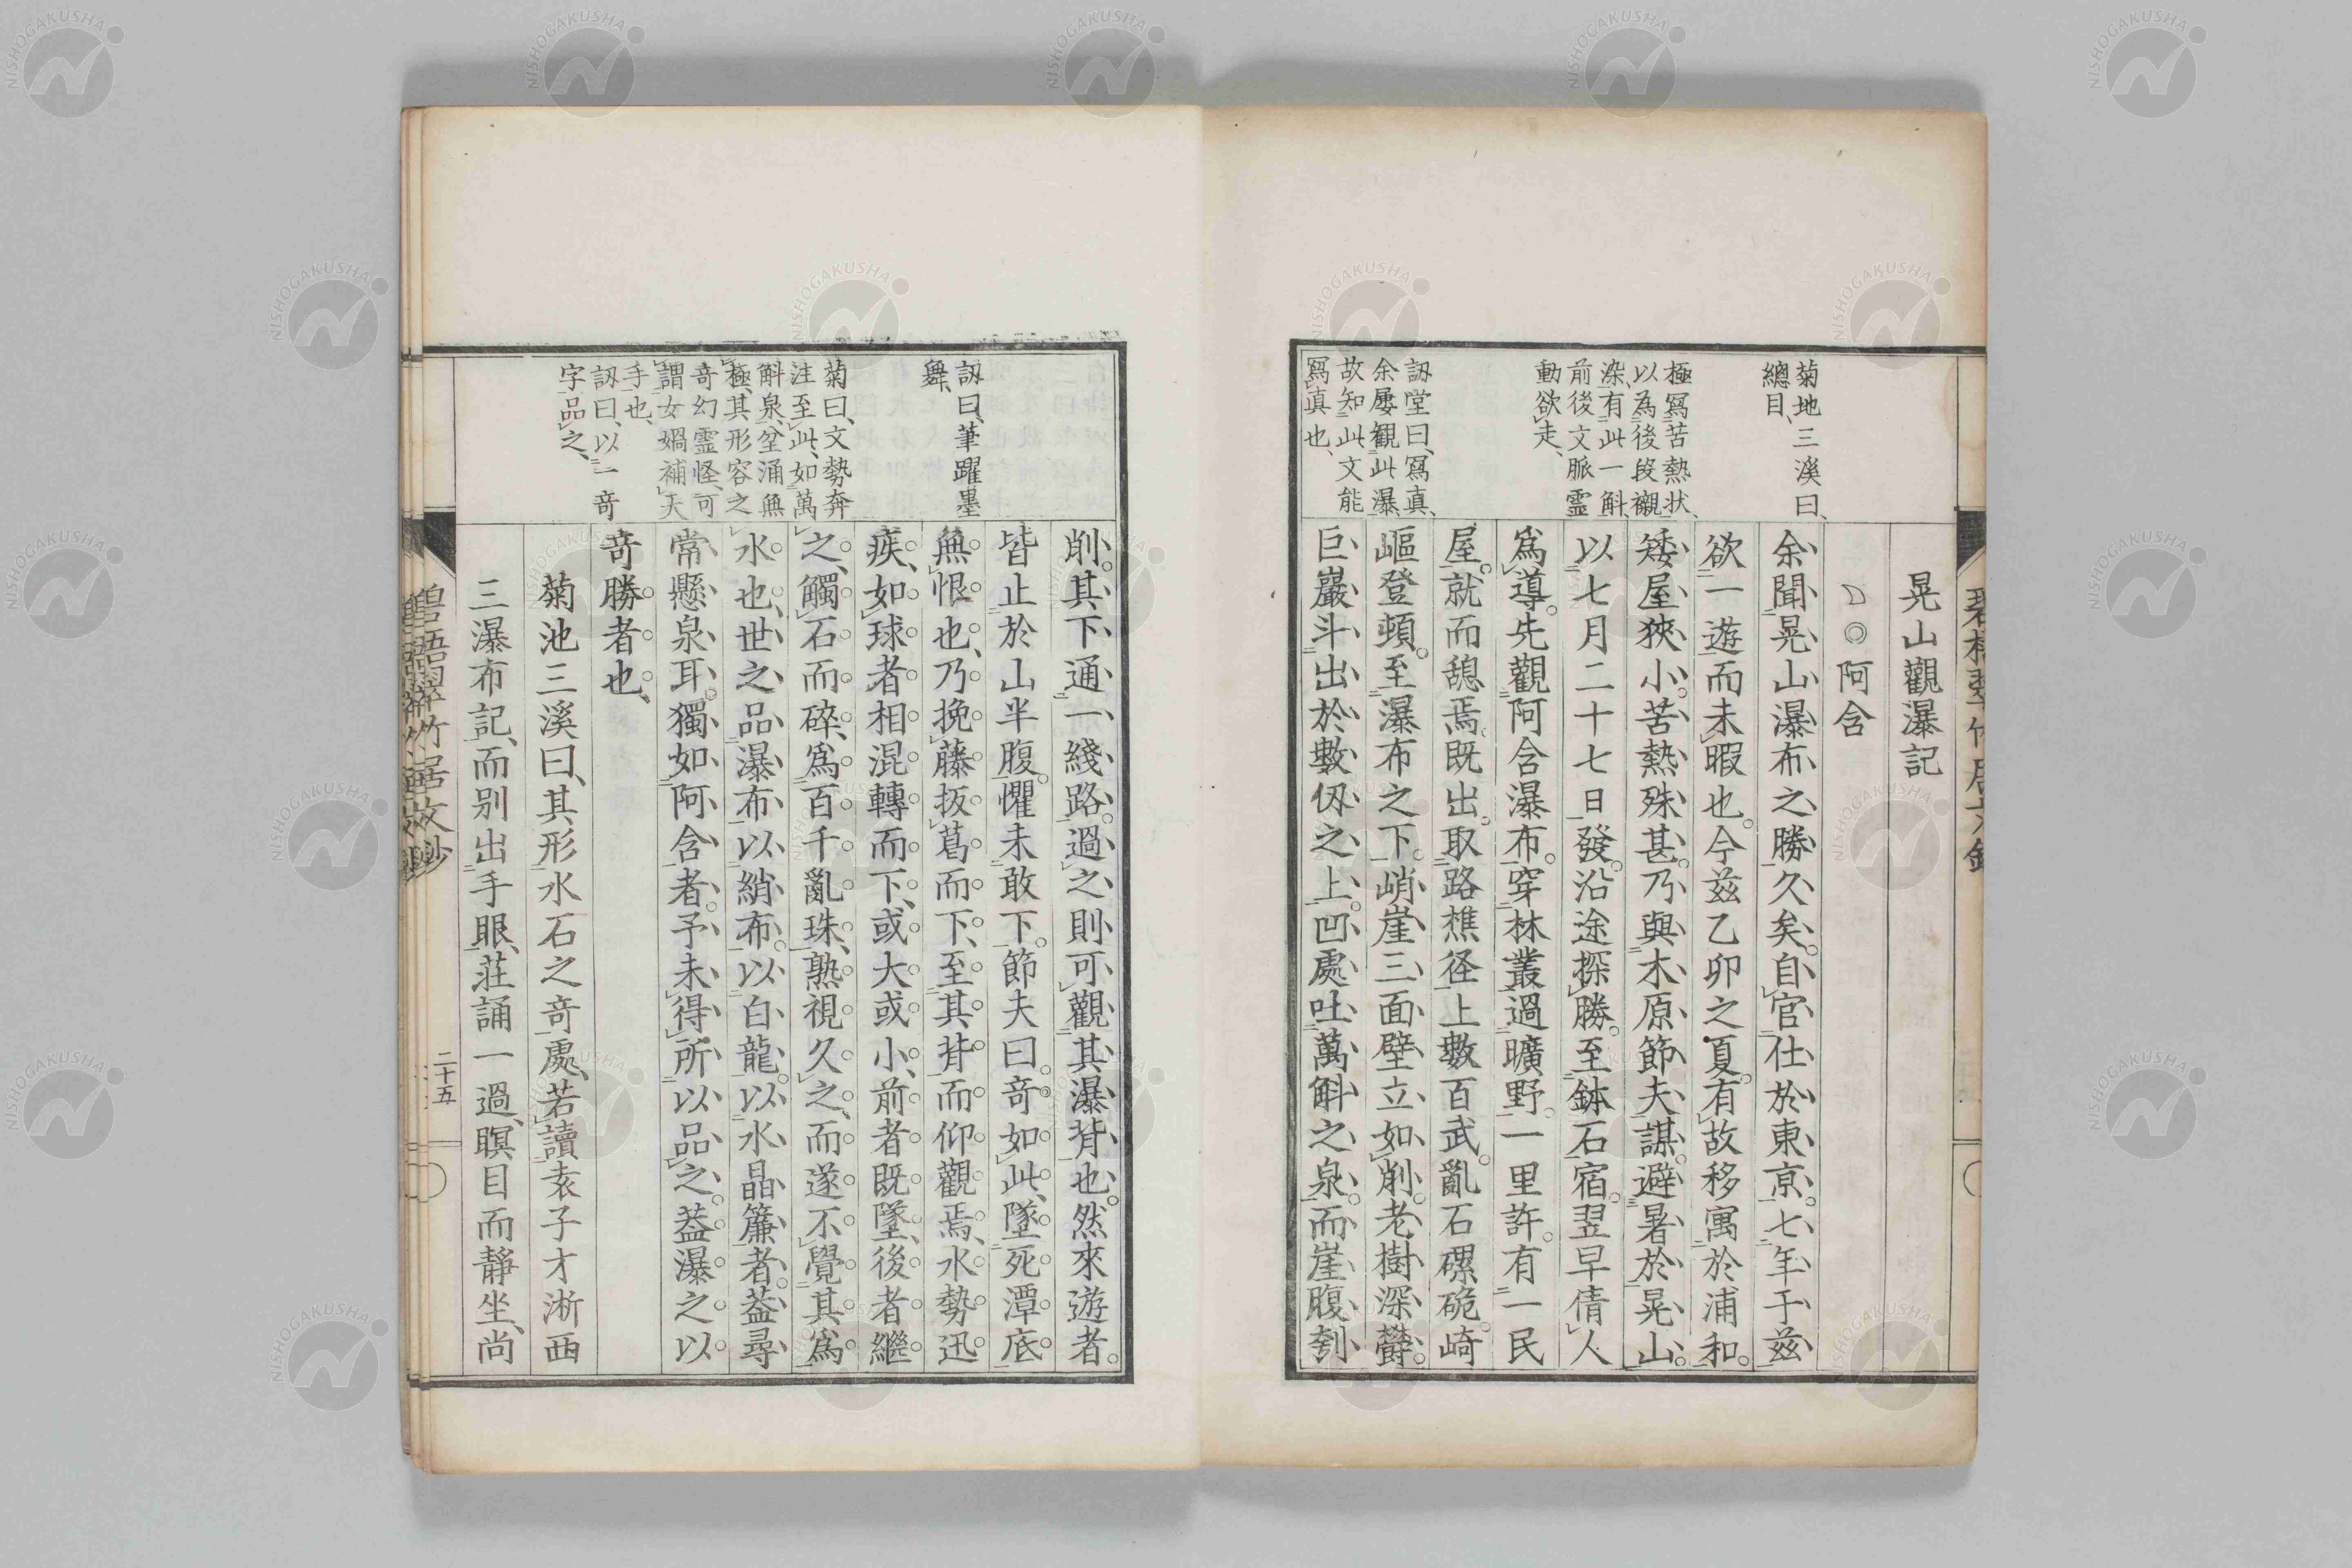 晃山觀瀑記
阿含
余聞晃山瀑布之勝久矣。自官仕於東京。七年于茲
欲一遊而未暇也。今茲乙卯之夏。有故移寓於浦和。
矮屋狹小。苦熱殊甚。乃與木原節夫謀。避暑於晃山。
以七月二十七日發。沿途探勝。至鉢石宿。翌早倩人
爲導。先觀阿含瀑布。穿林叢過曠野。一里許。有一民
屋。就而憩焉。既出。取路樵径上數百武。亂石磥硊。崎
嶇登頓。至瀑布之下。峭崖三面壁立如削。老樹深欝。
巨巖斗出於數仭之上。凹處吐萬斛之泉。而崖腹刳
菊地三溪曰、
總目、
極寫苦熱状、
以為後段襯
染、有此一斛、
前後文脈霊
動欲走、
訒堂曰、寫真、
余屡観此瀑、
故知此文能
寫真也、
削。其下通一綫路。過之則可觀其瀑背也。然來遊者。
皆止於山半腹。懼未敢下。節夫曰。奇如此、墜死潭底。
無恨也、乃挽藤扳葛而下、至其背而仰觀焉、水勢迅
疾、如球者相混轉而下、或大或小、前者既墜、後者繼
之、觸石而碎、爲百千亂珠、熟視久之、而遂不覺其爲
水也、世之品瀑布、以綃布。以白龍。以水晶簾者。葢尋
常懸泉耳。獨如阿含者。予未得所以品之。葢瀑之以
奇勝者也、
菊池三溪曰、其形水石之奇處、若讀袁子才淅西
三瀑布記、而別出手眼、莊誦一過、瞑目而靜坐、尚
訒曰、筆躍墨
舞、
菊曰、文勢奔
注至此、如萬
斛泉、坌涌無
極、其形容之
奇幻霊怪、可
謂女媧補天
手也、
訒曰、以一奇
字品之、
二十五